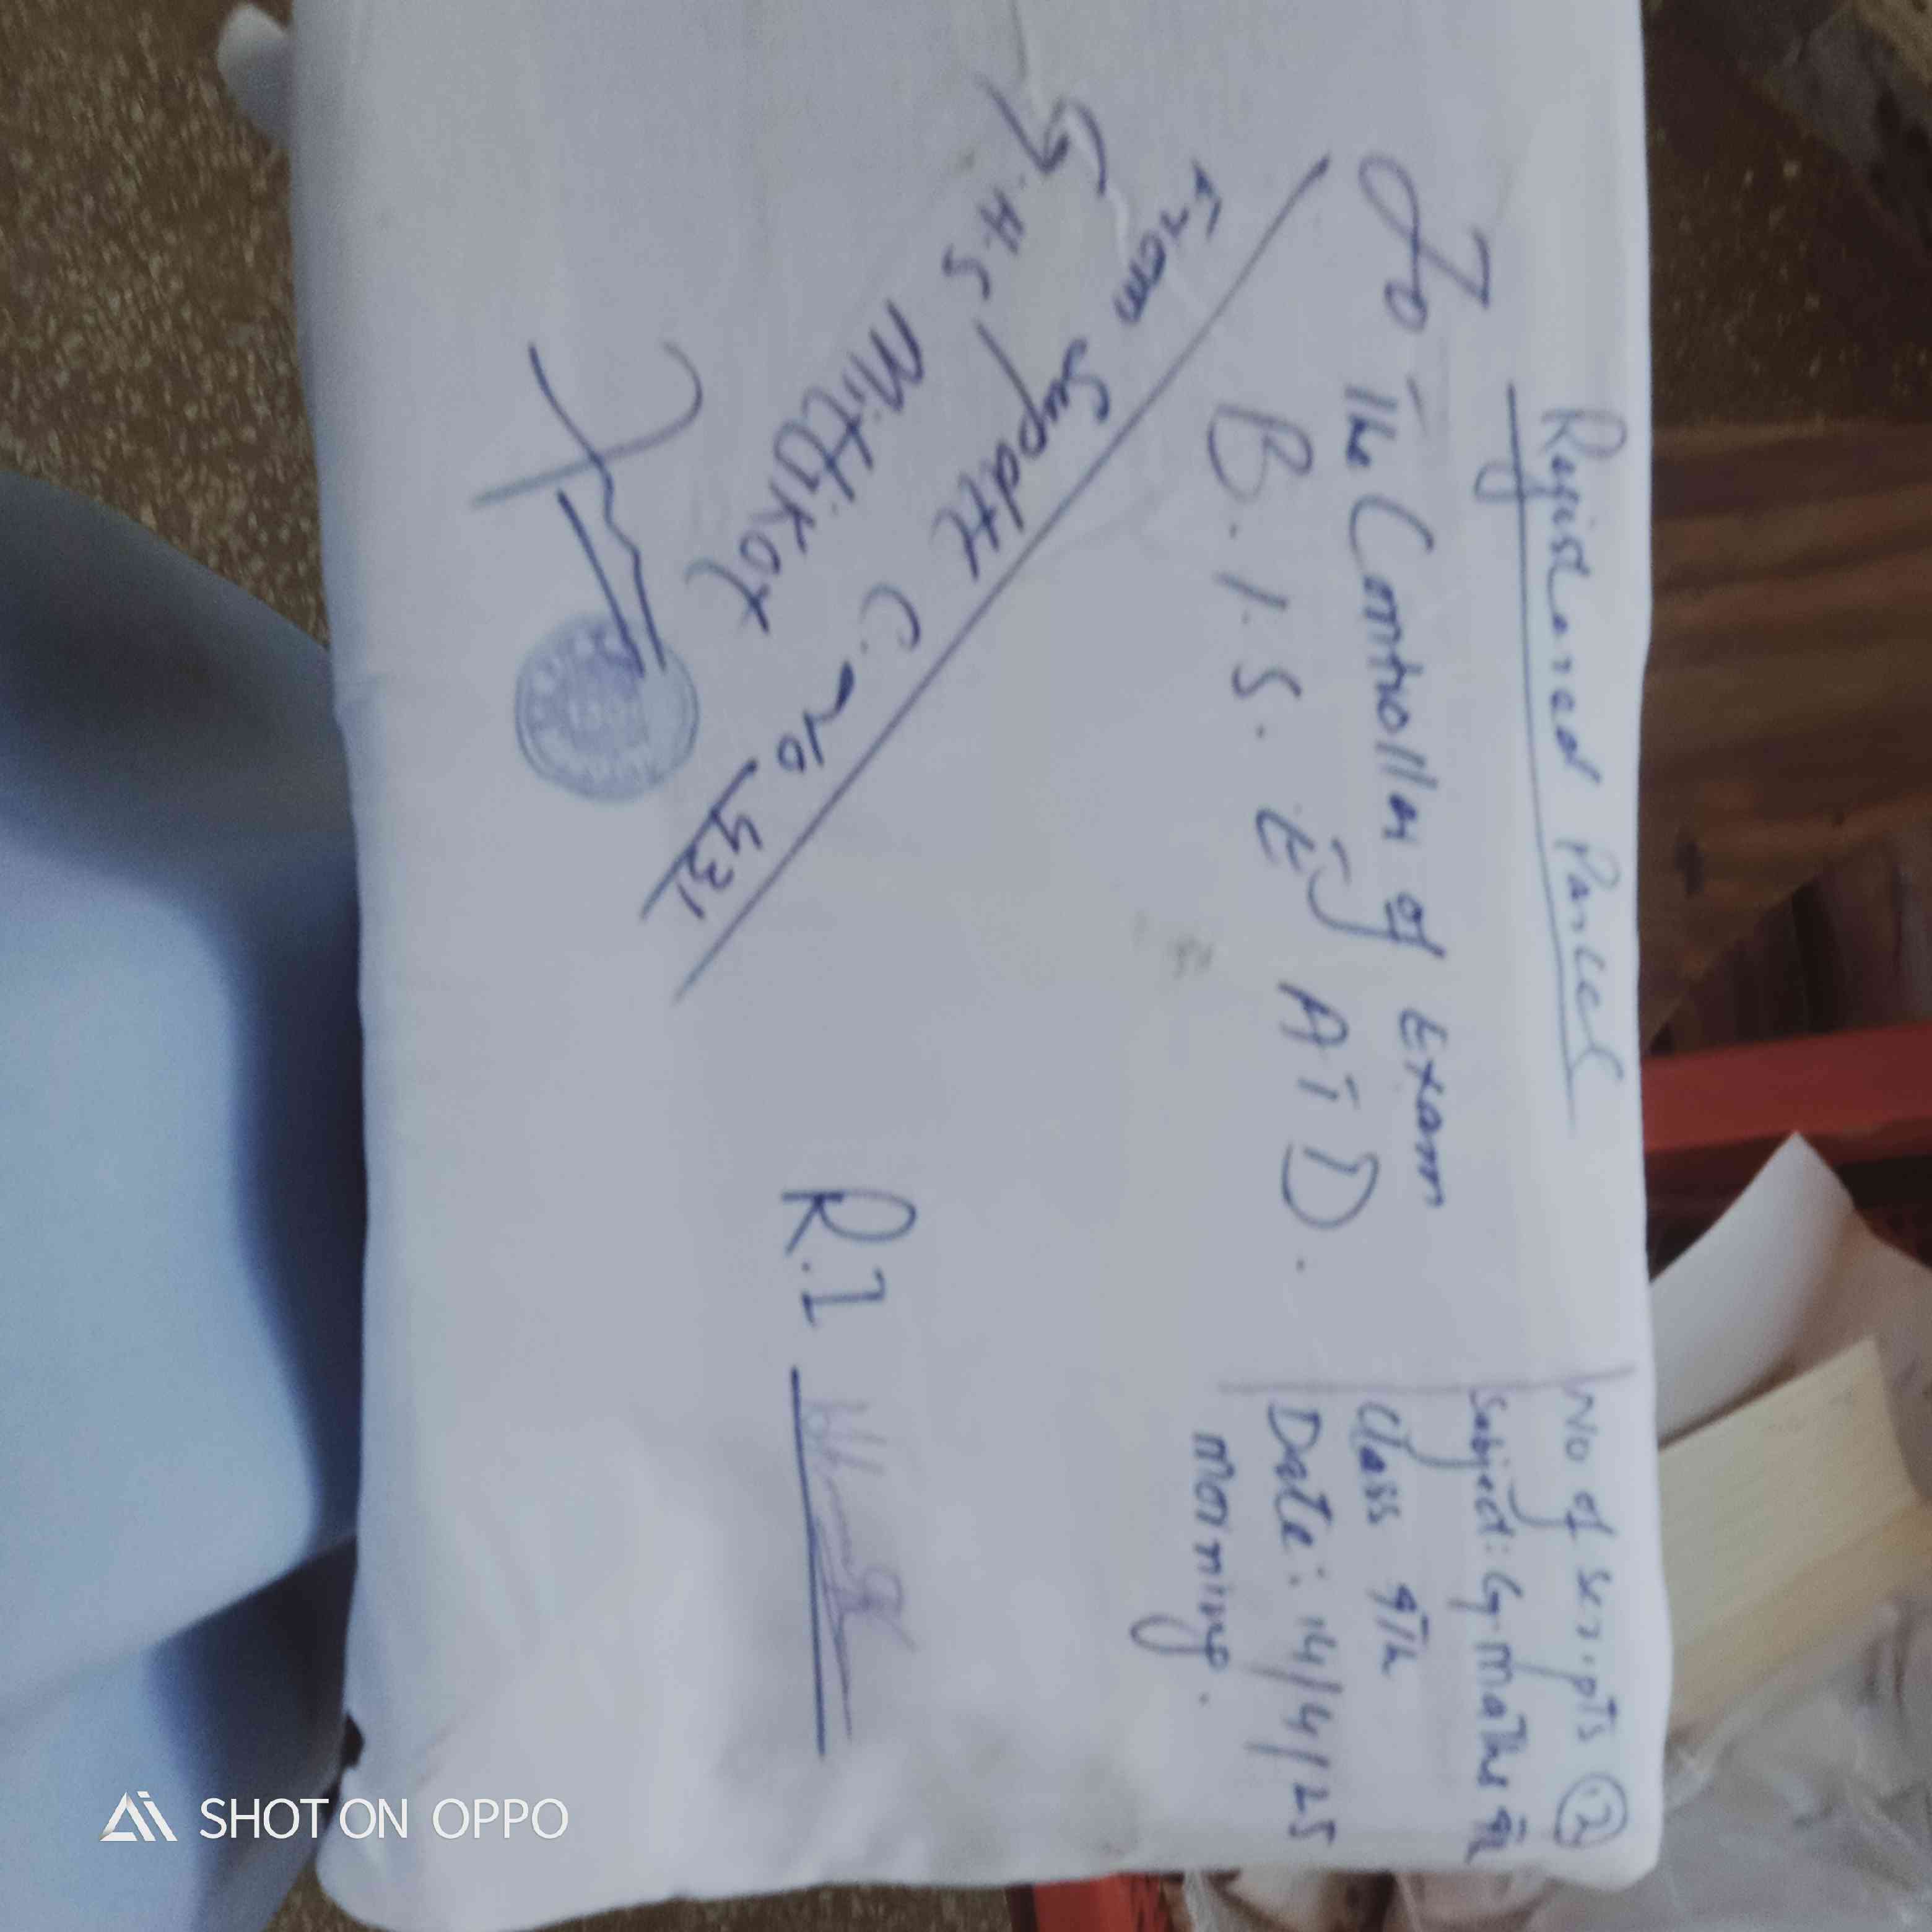 Registered Parcel
To The Controller of Exam
B.I.S.E ATD.
No of scripts 2
Subject: G. maths 9th
Class 9th
Date: 14/4/25
morning.
From Supdtt C. No 431
G.H.S MittiKot
R.I
SHOT ON OPPO